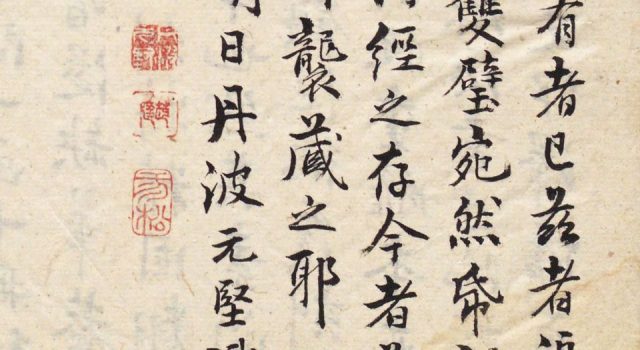 有者已茲者
雙璧宛然希
經之存今者
襲藏之耶
日丹波元堅